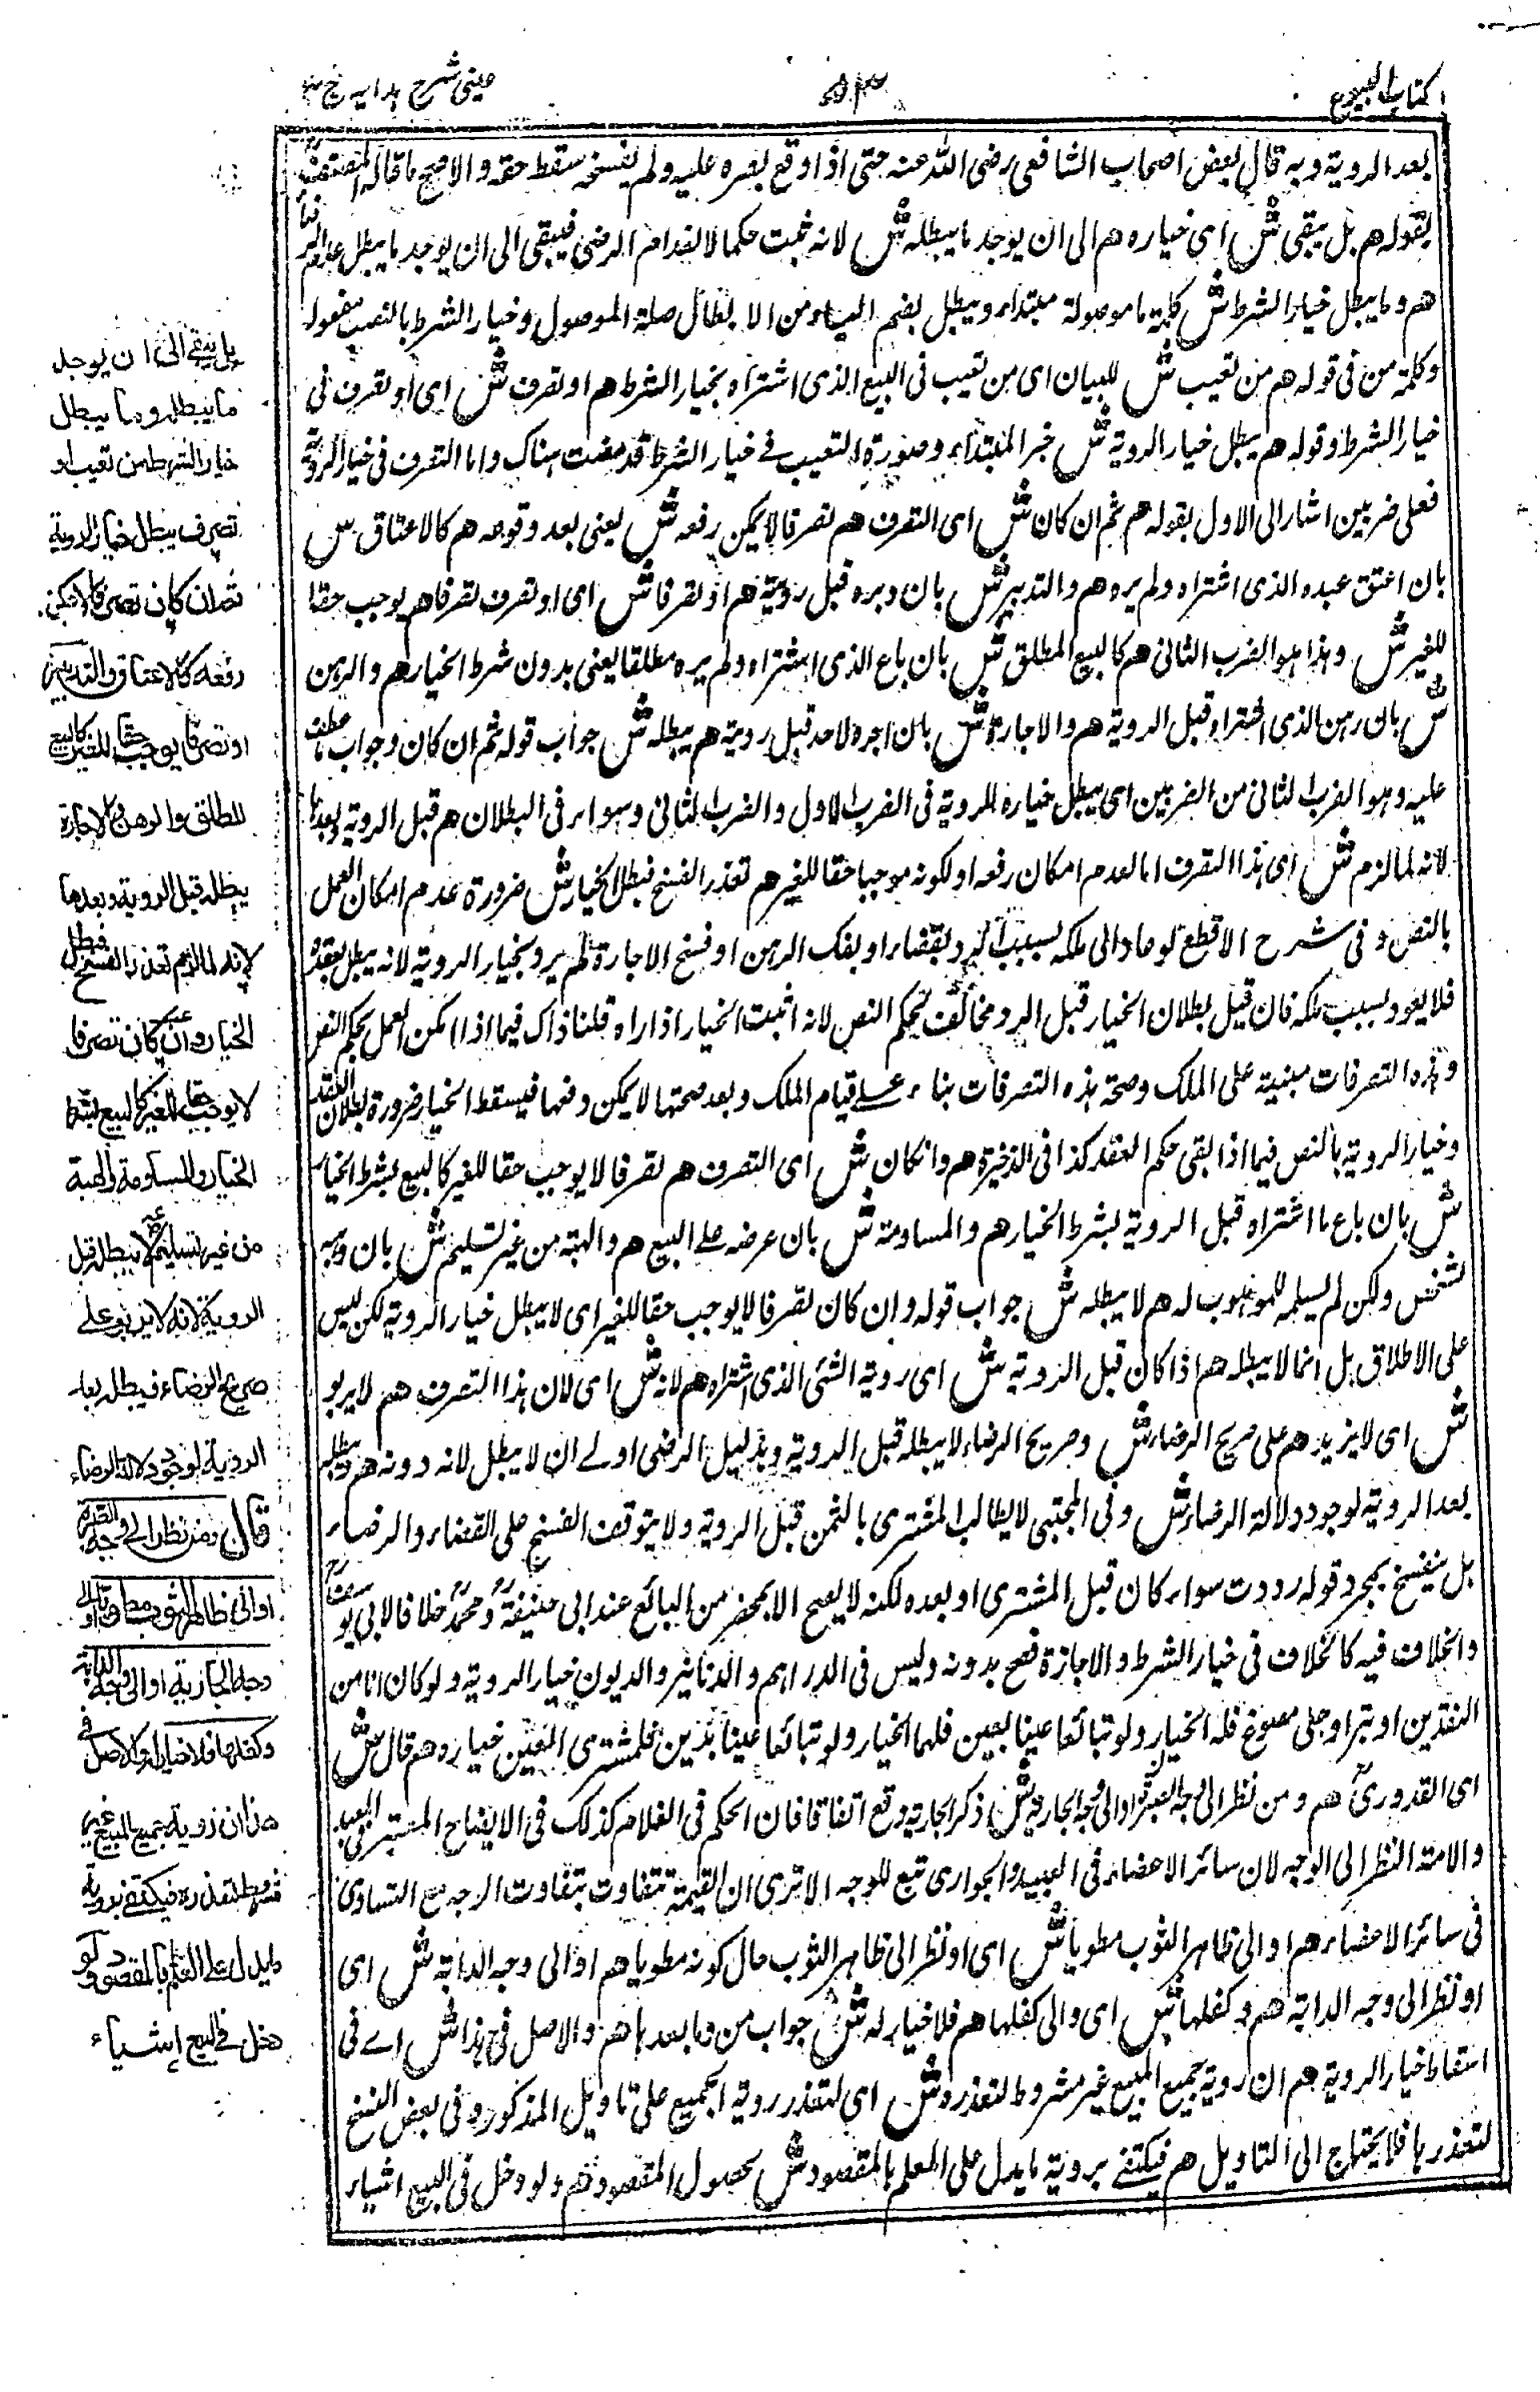 كتاب البيوع
٥٣
عينى شرح هدايه ج ٣
بعد الروية وبه قال بعض اصحاب الشافعى رضى الله عنه حتى اذا وقع بصره عليه ولم يفسخه سقط حقه والاصح ما قاله المصنف
بقوله هم بل يبقى ش اى خياره هم الى ان يوجد ما يبطله ش لانه ثبت حكما لانعدام الرضى فيبقى الى ان يوجد ما يبطل عدم الرضا
هم وما يبطل خيار الشرط ش كلمة ما موصولة مبتداء ويبطل بضم الياء من الابطال صلة الموصول وخيار الشرط بالنصب مفعوله
وكلمة من فى قوله هم من تعيب ش للبيان اى من تعيب فى البيع الذى اشتراه بخيار الشرط هم او تصرف ش اى او تصرف فى
خيار الشرط وقوله هم يبطل خيار الروية ش خبر المبتداء وصورة التعيب فى خيار الشرط قد مضت هناك واما التصرف فى خيار الروية
فعلى ضربين اشار الى الاول بقوله هم ثم ان كان ش اى التصرف هم تصرفا لا يمكن رفعه ش يعنى بعد وقوعه هم كالاعتاق ش
بان اعتق عبده الذى اشتراه ولم يره هم والتدبير ش بان دبره قبل رويته هم او تصرفا ش اى او تصرف تصرفا هم يوجب حقا
للغير ش وهذا هو الضرب الثانى هم كالبيع المطلق ش بان باع الذى اشتراه ولم يره مطلقا يعنى بدون شرط الخيار هم والرهن
ش بان رهن الذى اشتراه قبل الروية هم والاجارة ش بان اجره لاحد قبل رويته هم يبطله ش جواب قوله ثم ان كان وجواب ما عطف
عليه وهو الضرب الثانى من الضربين اى يبطل خياره للروية فى الضرب الاول والضرب الثانى وسواء فى البطلان هم قبل الروية وبعدها
لانه لما لزم ش اى هذا التصرف اما لعدم امكان رفعه او لكونه موجبا حقا للغير هم تعذر الفسخ فبطل الخيار ش ضرورة عدم امكان العمل
بالنص وفى شرح الاقطع لو عاد الى ملكه بسبب الرد بقضاء او بفك الرهن او فسخ الاجارة لم يرد بخيار الروية لانه يبطل بعقده
فلا يعود بسبب ملكه فان قيل بطلان الخيار قبل الرد مخالف لحكم النص لانه اثبت الخيار اذا راه قلنا ذاك فيما اذا امكن العمل بحكم النص
وهذه التصرفات مبنية على الملك وصحة هذه التصرفات بناء على قيام الملك وبعد صحتها لا يمكن دفعها فيسقط الخيار ضرورة لبطلان العقد
وخيار الروية بالنص فيما اذا بقى حكم العقد كذا فى الذخيرة هم وان كان ش اى التصرف هم تصرفا لا يوجب حقا للغير كالبيع بشرط الخيار
ش بان باع ما اشتراه قبل الروية بشرط الخيار هم والمساومة ش بان عرضه على البيع هم والهبة من غير تسليم ش بان وهبه
لشخص ولكن لم يسلمه للموهوب له هم لا يبطله ش جواب قوله وان كان تصرفا لا يوجب حقا للغير اى لا يبطل خيار الروية لكن ليس
على الاطلاق بل انما لا يبطله هم اذا كان قبل الروية ش اى روية الشئ الذى اشتراه هم لانه ش اى لان هذا التصرف هم لا يربو
ش اى لا يزيد هم على صريح الرضاء ش وصريح الرضاء لا يبطله قبل الروية وبدليل الرضى اولے ان لا يبطل لانه دونه هم ويبطله
بعد الروية لوجود دلالة الرضاء ش وفى المجتبى لا يطالب المشترى بالثمن قبل الروية ولا يتوقف الفسخ على القضاء والرضاء
بل ينفسخ بمجرد قوله رددت سواء كان قبل المشترى او بعده لكنه لا يصح الا بمحضر من البائع عند ابى حنيفةؒ ومحمدؒ خلافا لابى يوسفؒ
والخلاف فيه كالخلاف فى خيار الشرط والاجازة فصح بدونه وليس فى الدراهم والدنانير والديون خيار الروية ولو كان انا من
النقدين او تبرا وحلى مصوغ فله الخيار ولو تبائعا عينا بعين فلهما الخيار ولو تبائعا عينا بدين فلمشترى العين خيار وهم قال ش
اى القدورىؒ هم ومن نظر الى وجه الصبرة او الى وجه الجارية ش ذكر الجارية وقع اتفاقا فان الحكم فى الغلام كذلك فى الايضاح المعتبر فى العبد
والامة النظر الى الوجه لان سائر الاعضاء فى العبيد والجوارى تبع للوجه الا ترى ان القيمة تتفاوت بتفاوت الوجه مع التساوى
فى سائر الاعضاء هم او الى ظاهر الثوب مطويا ش اى او نظر الى ظاهر الثوب حال كونه مطويا هم او الى وجه الدابة ش اى
او نظر الى وجه الدابة هم وكفلها ش اى والى كفلها هم فلا خيار له ش جواب من وما بعدها هم والاصل فى هذا ش اے فى
اسقاط خيار الروية هم ان روية جميع المبيع غير مشروط لتعذره ش اى لتعذر روية الجميع على تاويل المذكور وفى بعض النسخ
لتعذرها فلا يحتاج الى التاويل هم فيكتفے بروية ما يدل على العلم بالمقصود ش بحصول المقصود هم ولو دخل فى البيع اشياء
بل يبقے الى ان يوجد
ما يبطله وما يبطل
خيار الشرط من تعيب او
تصرف يبطل خيار الروية
ثم ان كان تصرفا لا يمكن
رفعه كالاعتاق والتدبير
او تصرفا يوجب حقا للغير كالبيع
المطلق والرهن والاجارة
يبطله قبل الروية وبعدها
لانه لما لزم تعذر الفسخ فبطل
الخيار وان كان تصرفا
لا يوجب حقا للغير كالبيع بشرط
الخيار والمساومة والهبة
من غير تسليم لا يبطله قبل
الروية لانه لا يربو على
صريح الرضاء ويبطله بعد
الروية لوجود دلالة الرضاء
قال ومن نظر الى وجه الصبرة
او الى ظاهر الثوب مطويا او الى
وجه الجارية او الى وجه الدابة
وكفلها فلا خيار له والاصل فى
هذا ان روية جميع المبيع غير
مشروط لتعذره فيكتفے بروية
ما يدل على العلم بالمقصود ولو
دخل فى البيع اشياء